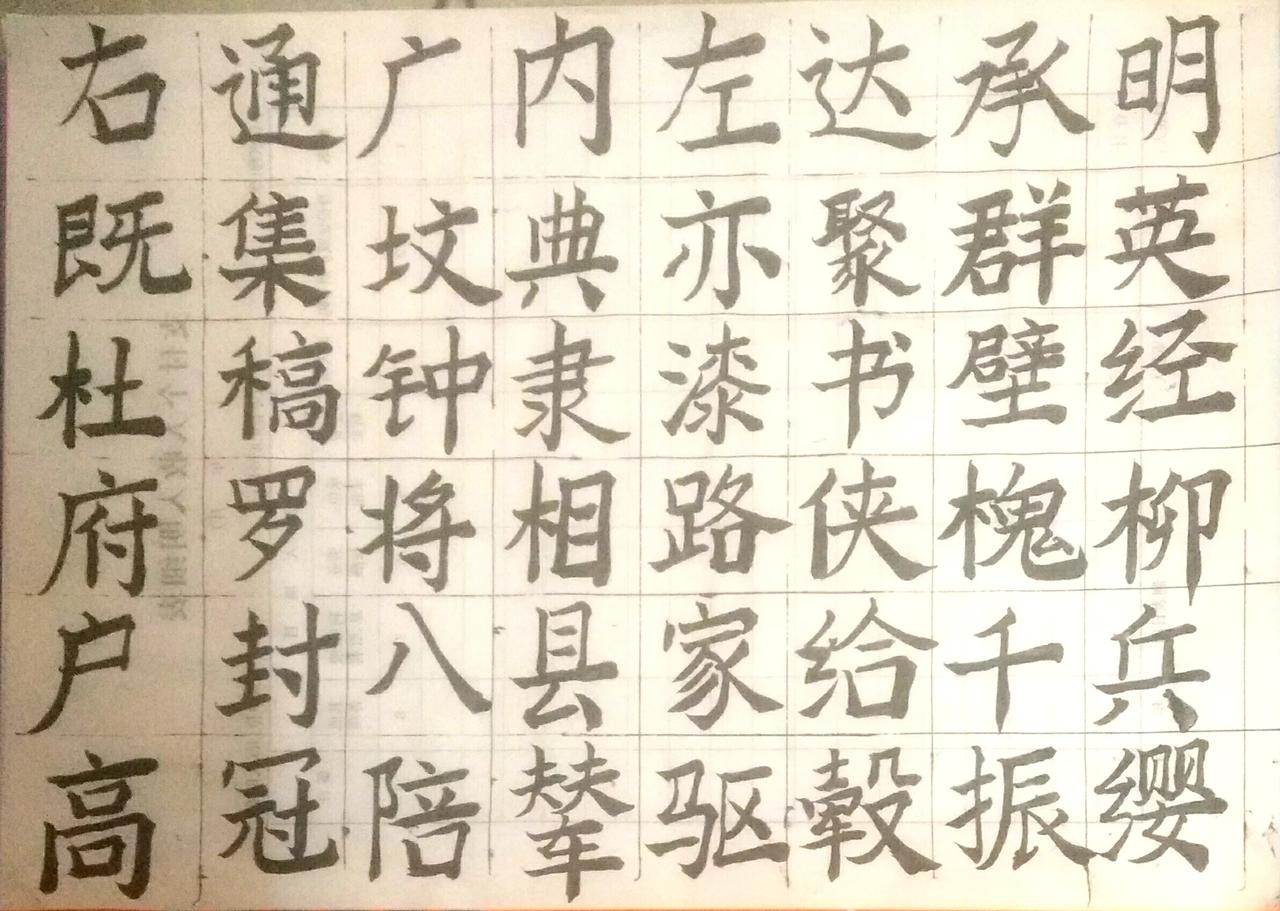 右通广内左达承明
既集坟典亦聚群英
杜稿钟隶漆书壁经
府罗将相路侠槐柳
户封八县家给千兵
高冠陪辇驱毂振缨